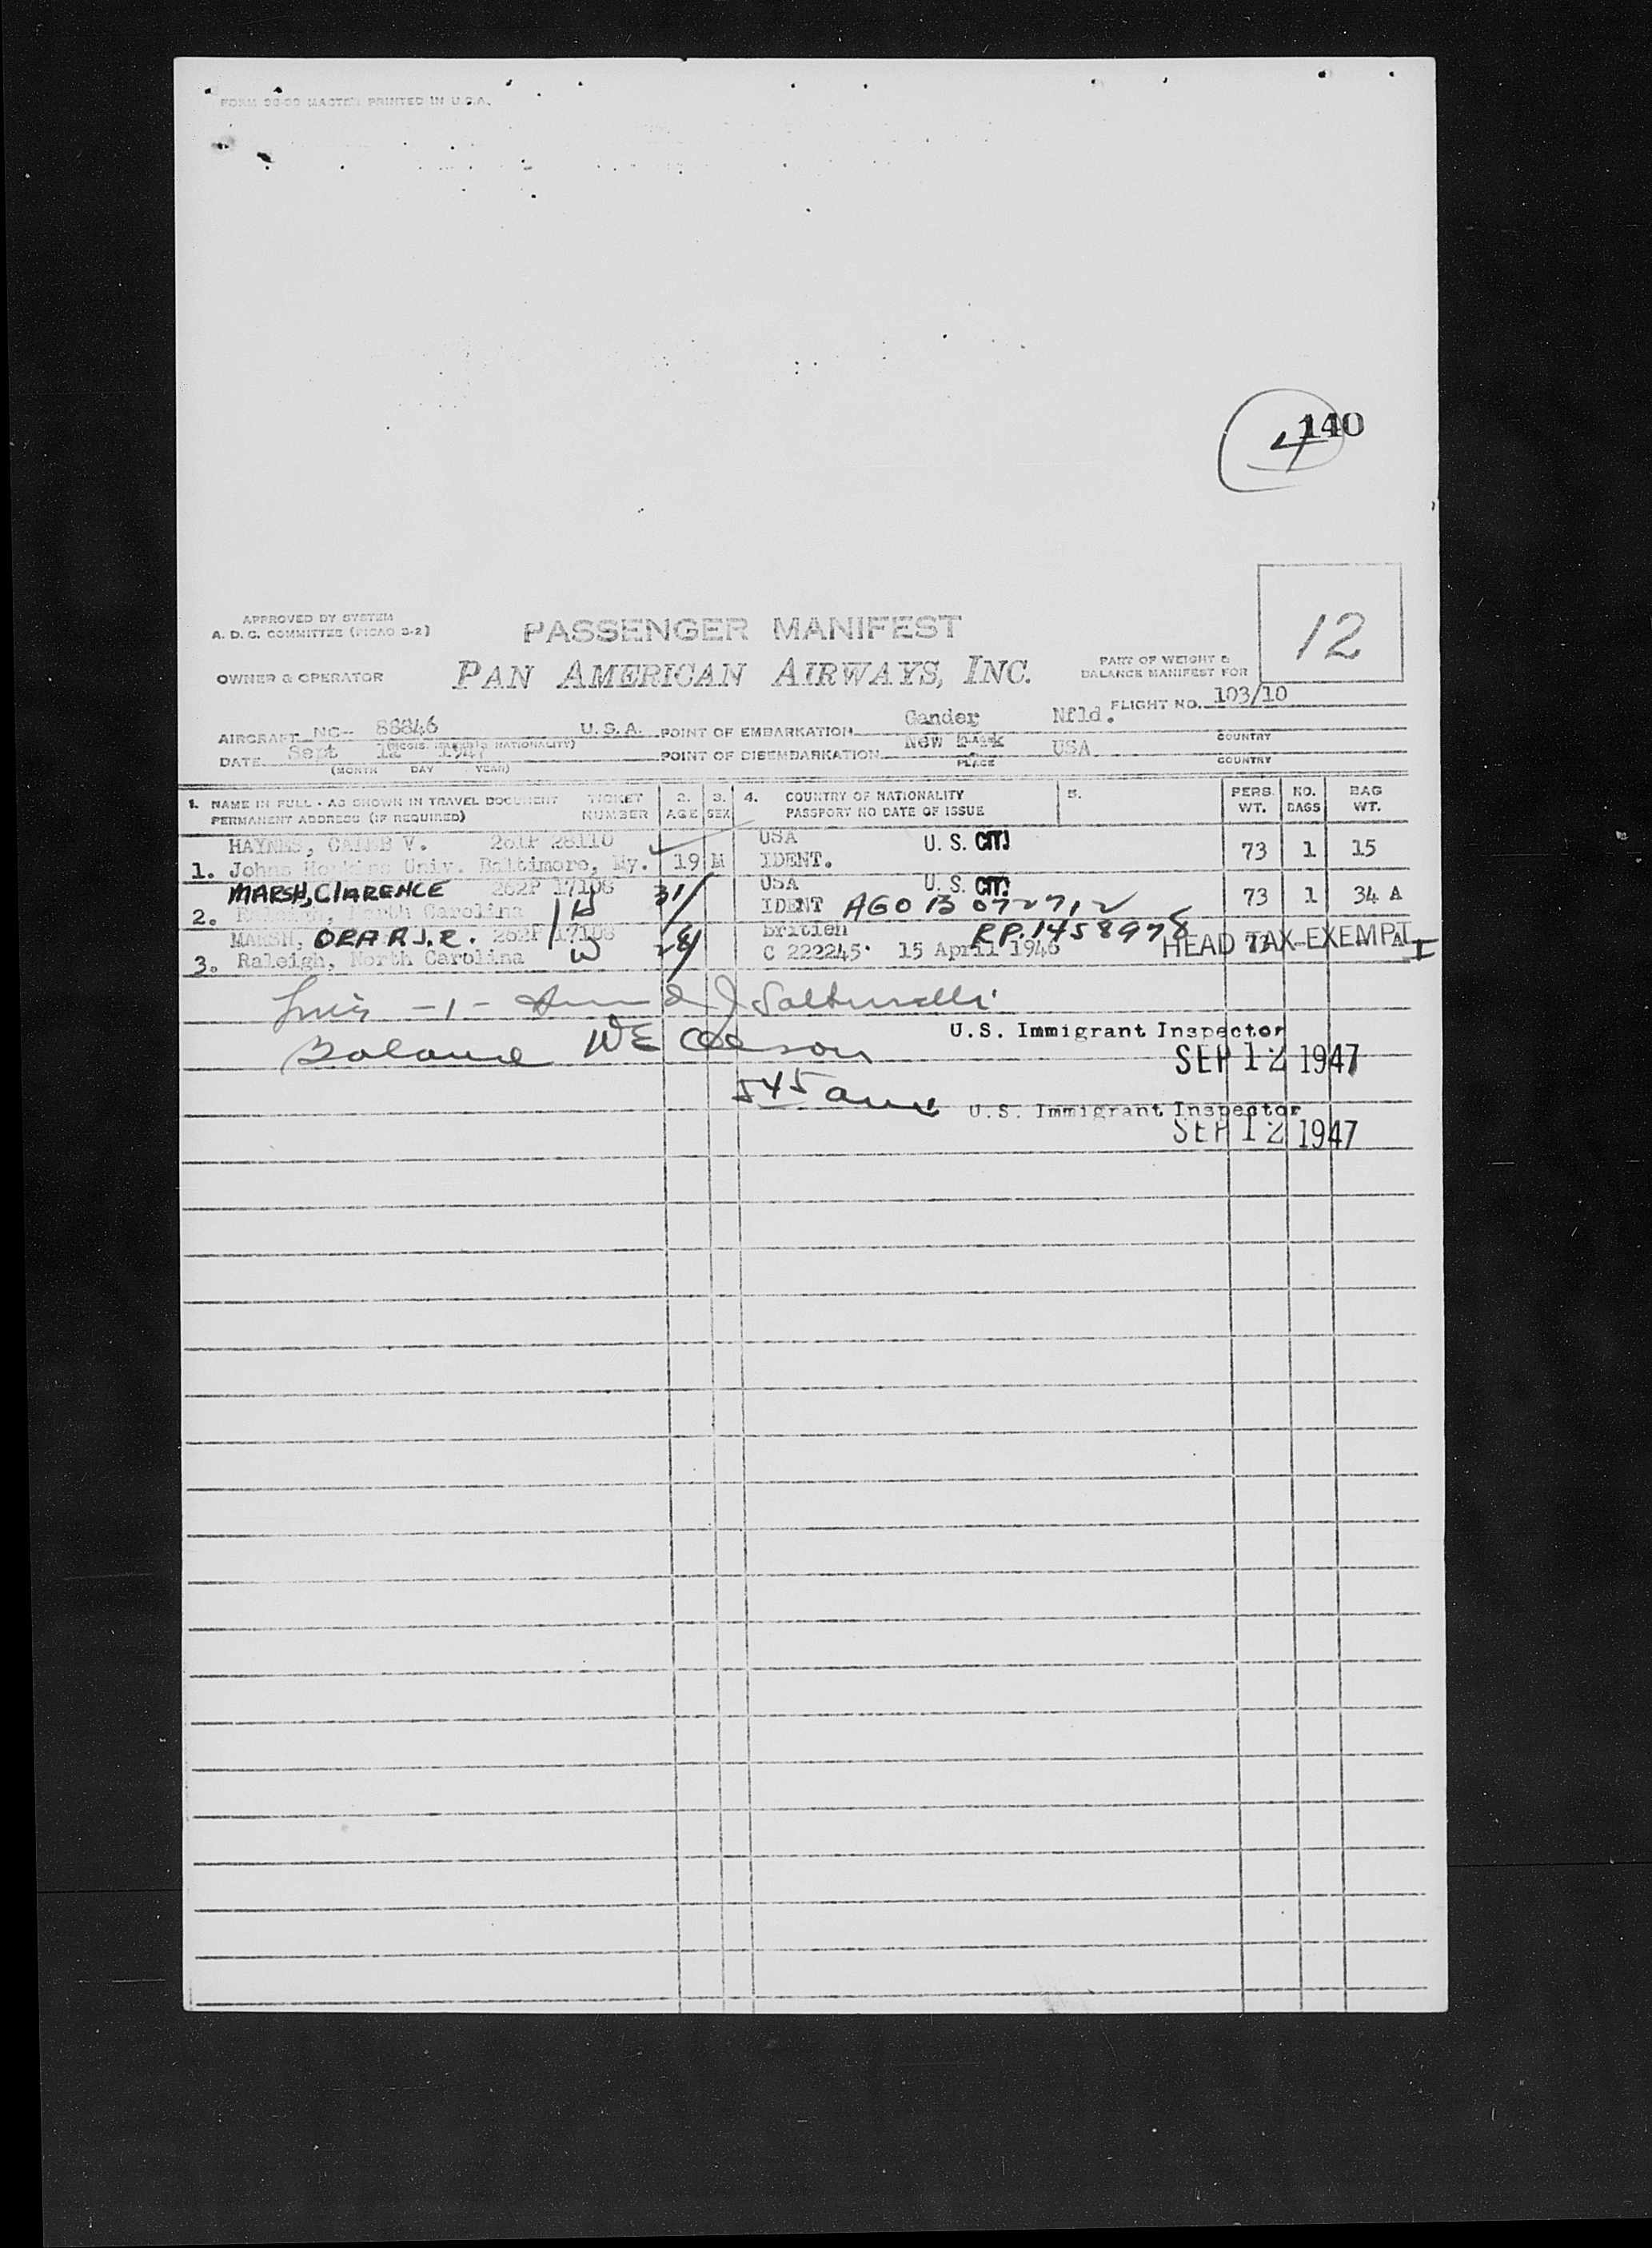 PRINTED IN U.S.A.
140
4
APPROVED BY SYSTEM
A. D. C. COMMITTEE (PICAO S-2)
PASSENGER MANIFEST
12
OWNER & OPERATOR
PAN AMERICAN AIRWAYS, INC.
PART OF WEIGHT &
BALANCE MANIFEST FOR
FLIGHT NO. 103/10
AIRCRAFT NC- 88846 U.S.A. POINT OF EMBARKATION Gander Nfld.
COUNTRY
DATE Sept 12 1947 POINT OF DISEMBARKATION New York USA
(MONTH DAY YEAR) PLACE COUNTRY
1. NAME IN FULL - AS SHOWN IN TRAVEL DOCUMENT TICKET 2. 3. 4. COUNTRY OF NATIONALITY 5. PERS. NO. BAG
PERMANENT ADDRESS (IF REQUIRED) NUMBER AGE SEX PASSPORT NO DATE OF ISSUE WT. BAGS WT.
HAYNES, CALEB V. 261P 28110 USA U. S. CIT.
1. Johns Hopkins Univ. Baltimore, My. 19 M IDENT. 73 1 15
MARSH, CLARENCE 262P 17108 31 USA U. S. CIT.
2. Raleigh, North Carolina H IDENT AGO B 072712 73 1 34 A
MARSH, ORA R.J.R. 262P 17108 British RP.1458978
3. Raleigh, North Carolina W C 222245 15 April 1946 HEAD TAX EXEMPT
-1-
U.S. Immigrant Inspector
Balance WE
SEP 12 1947
545 am U.S. Immigrant Inspector
SEP 12 1947